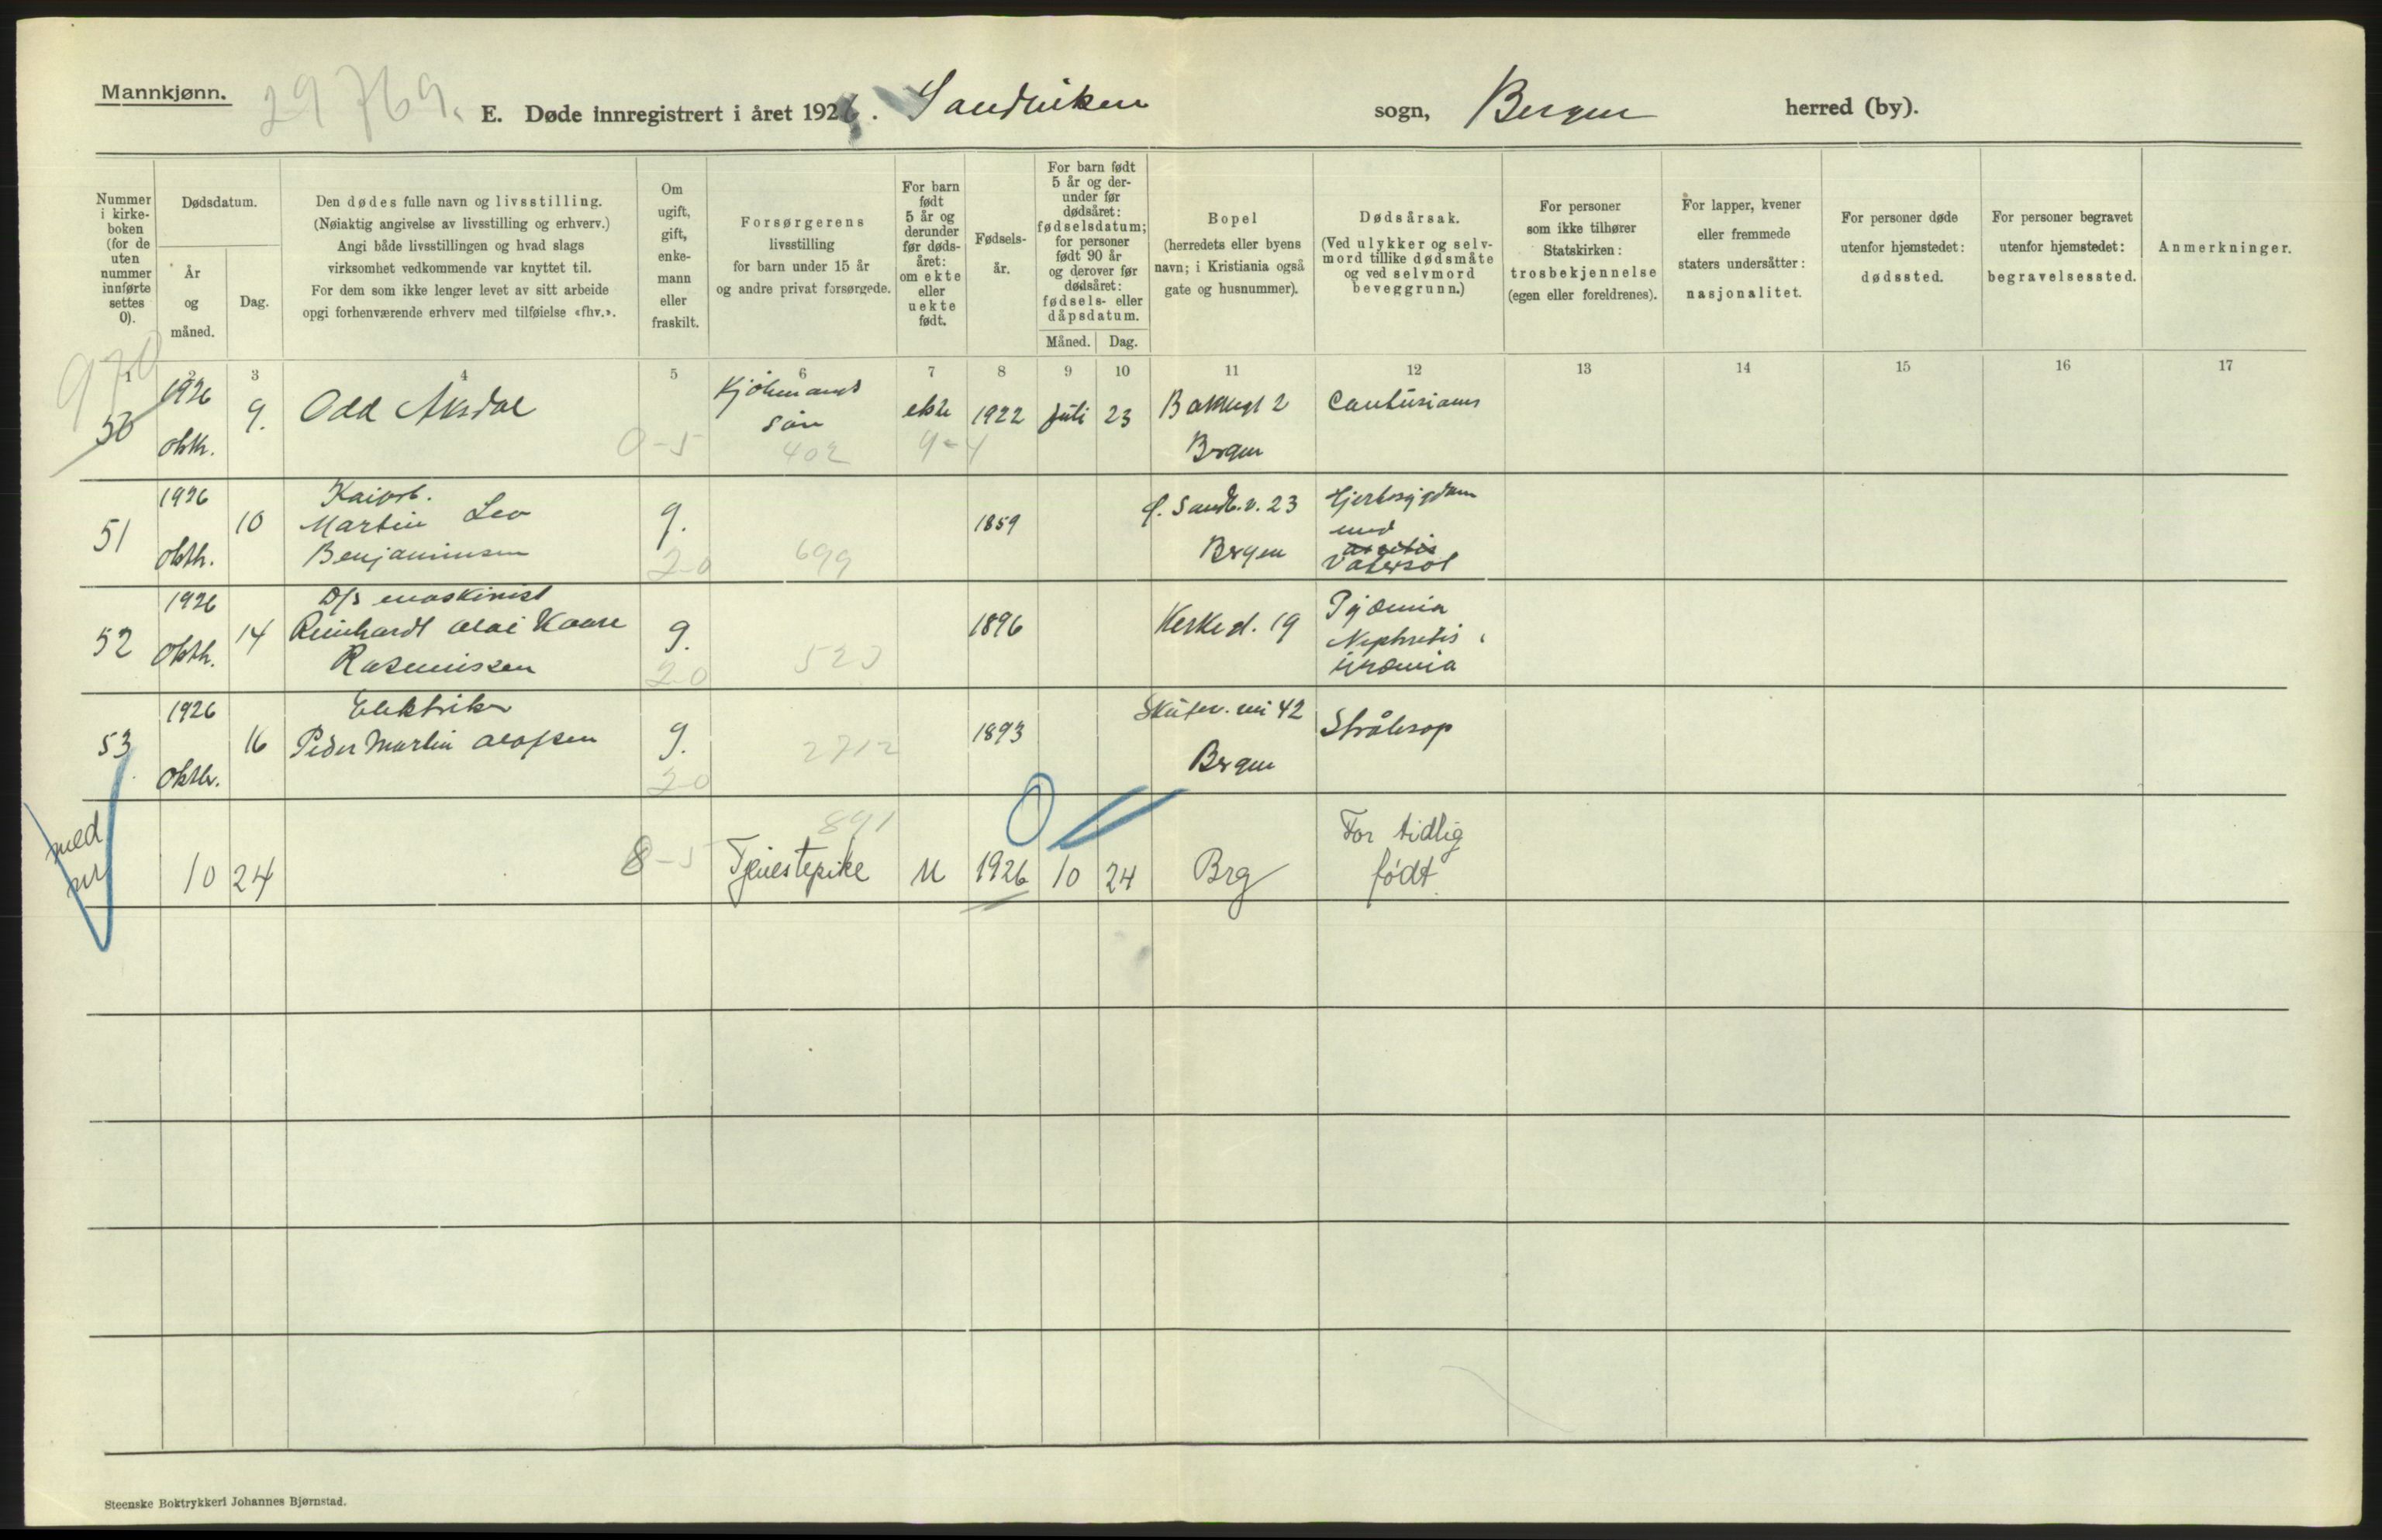 Mannkjønn.
29769.
E. Døde innregistrert i året 1926. Sandviken sogn, Bergen herred (by).
Nummer i kirke-boken (for de uten nummer innførte settes 0).
Dødsdatum.
År og måned.
Dag.
Den dødes fulle navn og livsstilling.
(Nøiaktig angivelse av livsstilling og erhverv.)
Angi både livsstillingen og hvad slags
virksomhet vedkommende var knyttet til.
For dem som ikke lenger levet av sitt arbeide
opgi forhenværende erhverv med tilføielse «fhv.».
Om ugift, gift, enke-mann eller fraskilt.
Forsørgerens
livsstilling
for barn under 15 år
og andre privat forsørgede.
For barn født 5 år og derunder før døds-året: om ekte eller uekte født.
Fødsels-år.
For barn født 5 år og der-under før dødsåret: fødselsdatum; for personer født 90 år og derover før dødsåret: fødsels- eller dåpsdatum.
Måned.
Dag.
Bopel
(herredets eller byens
navn; i Kristiania også
gate og husnummer).
Dødsårsak.
(Ved ulykker og selv-
mord tillike dødsmåte
og ved selvmord
beveggrunn.)
For personer
som ikke tilhører
Statskirken:
trosbekjennelse
(egen eller foreldrenes).
For lapper, kvener
eller fremmede
staters undersåtter:
nasjonalitet.
For personer døde
utenfor hjemstedet:
dødssted.
For personer begravet
utenfor hjemstedet:
begravelsessted.
Anmerkninger.
970
1 2 3 4 5 6 7 8 9 10 11 12 13 14 15 16 17
50
1926
oktr.
9.
Odd Aksdal
0-5
Kjøbmands
søn
402
ekte
4-4
1922 juli 23
Bakkegt 2
Bergen
51
1926
oktb.
10
Kaiarb.
Martin Leo
Benjaminsen
g.
20
699
1859
f. Sandv.v. 23
Bergen
Hjertesygdom
med
Vatersot
52
1926
oktb.
14
D/s maskinist
Reinhardt Olai Kaare
Rasmussen
g.
20
523
1896
Kirkegt. 19
Pyæmia
Nephritis
Uræmia
53
1926
Oktbr.
16
Elektriker
Peder Martin Olafsen
g.
20
2712
1893
Skutev. vei 42
Bergen
Strålesop
med
nr
10 24
8-5
891
Tjenestepike
U
0
1926 10 24
Brg
For tidlig
født.
Steenske Boktrykkeri Johannes Bjørnstad.